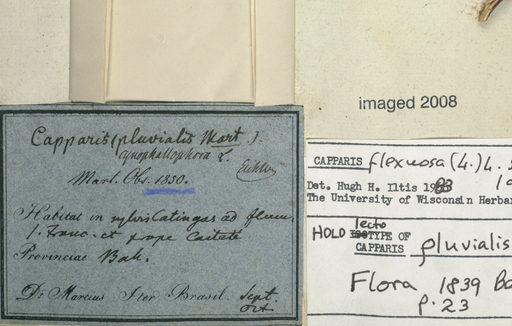 Capparis (pluvialis Mart.)
cynophallophora L.
Eichler
Mart. Obs. 1830.
Habitat in sylvis Catingas ad flum.
S. Franc. et prope Caiteté
Provinciae Bah.
Dr Martius Iter Brasil. Sept.
Oct
imaged 2008
CAPPARIS flexuosa (L.) L.
Det. Hugh H. Iltis 1983
The University of Wisconsin Herbar
HOLO lectoTYPE OF
CAPPARIS pluvialis
Flora 1839
p. 23